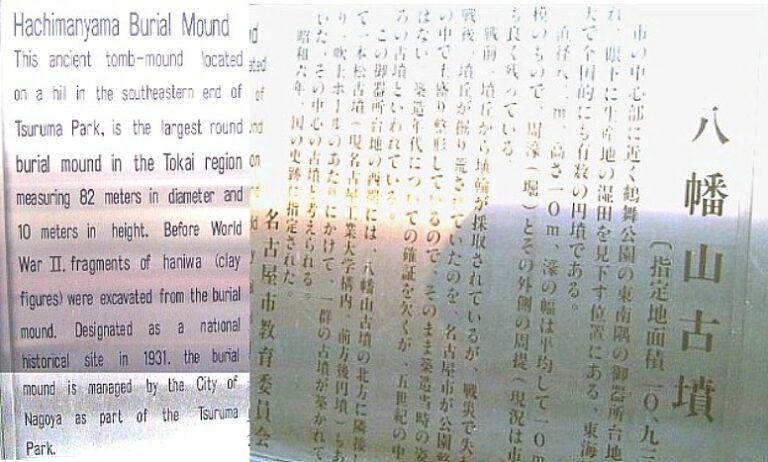 Hachimanyama Burial Mound
This ancient tomb-mound located
on a hill in the southeastern end of
Tsuruma Park, is the largest round
burial mound in the Tokai region
measuring 82 meters in diameter and
10 meters in height. Before World
War II. fragments of haniwa (clay
figures) were excavated from the burial
mound. Designated as a national
historical site in 1931. the burial
mound is managed by the City of
Nagoya as part of the Tsuruma
Park.
八幡山古墳
(指定地面積一〇、九三
市の中心部に近く鶴舞公園の東南隅の御器所台地
れ、眼下に生産地の湿田を見下す位置にある、東海
大で全国的にも有数の円墳である。
直径八二m、高さ一〇m、濠の幅は平均して一〇m
模のもので、周濠(堀)とその外側の周提(現況は市
も良く残っている。
戦前、墳丘から埴輪が採取されているが、戦災で失わ
戦後、墳丘が掘り荒されていたのを、名古屋市が公園整
の中で土盛り整形しているので、そのまま築造当時の姿
はない。築造年代についての確証を欠くが、五世紀の中
ろの古墳といわれている。
この御器所台地の西側には、八幡山古墳の北方に隣接し
て一本松古墳(現名古屋工業大学構内、前方後円墳)もあ
り、吹上ホールのあたりにかけて、一群の古墳が築かれて
いた。その中心の古墳と考えられる。
昭和六年、国の史跡に指定された。
名古屋市教育委員会